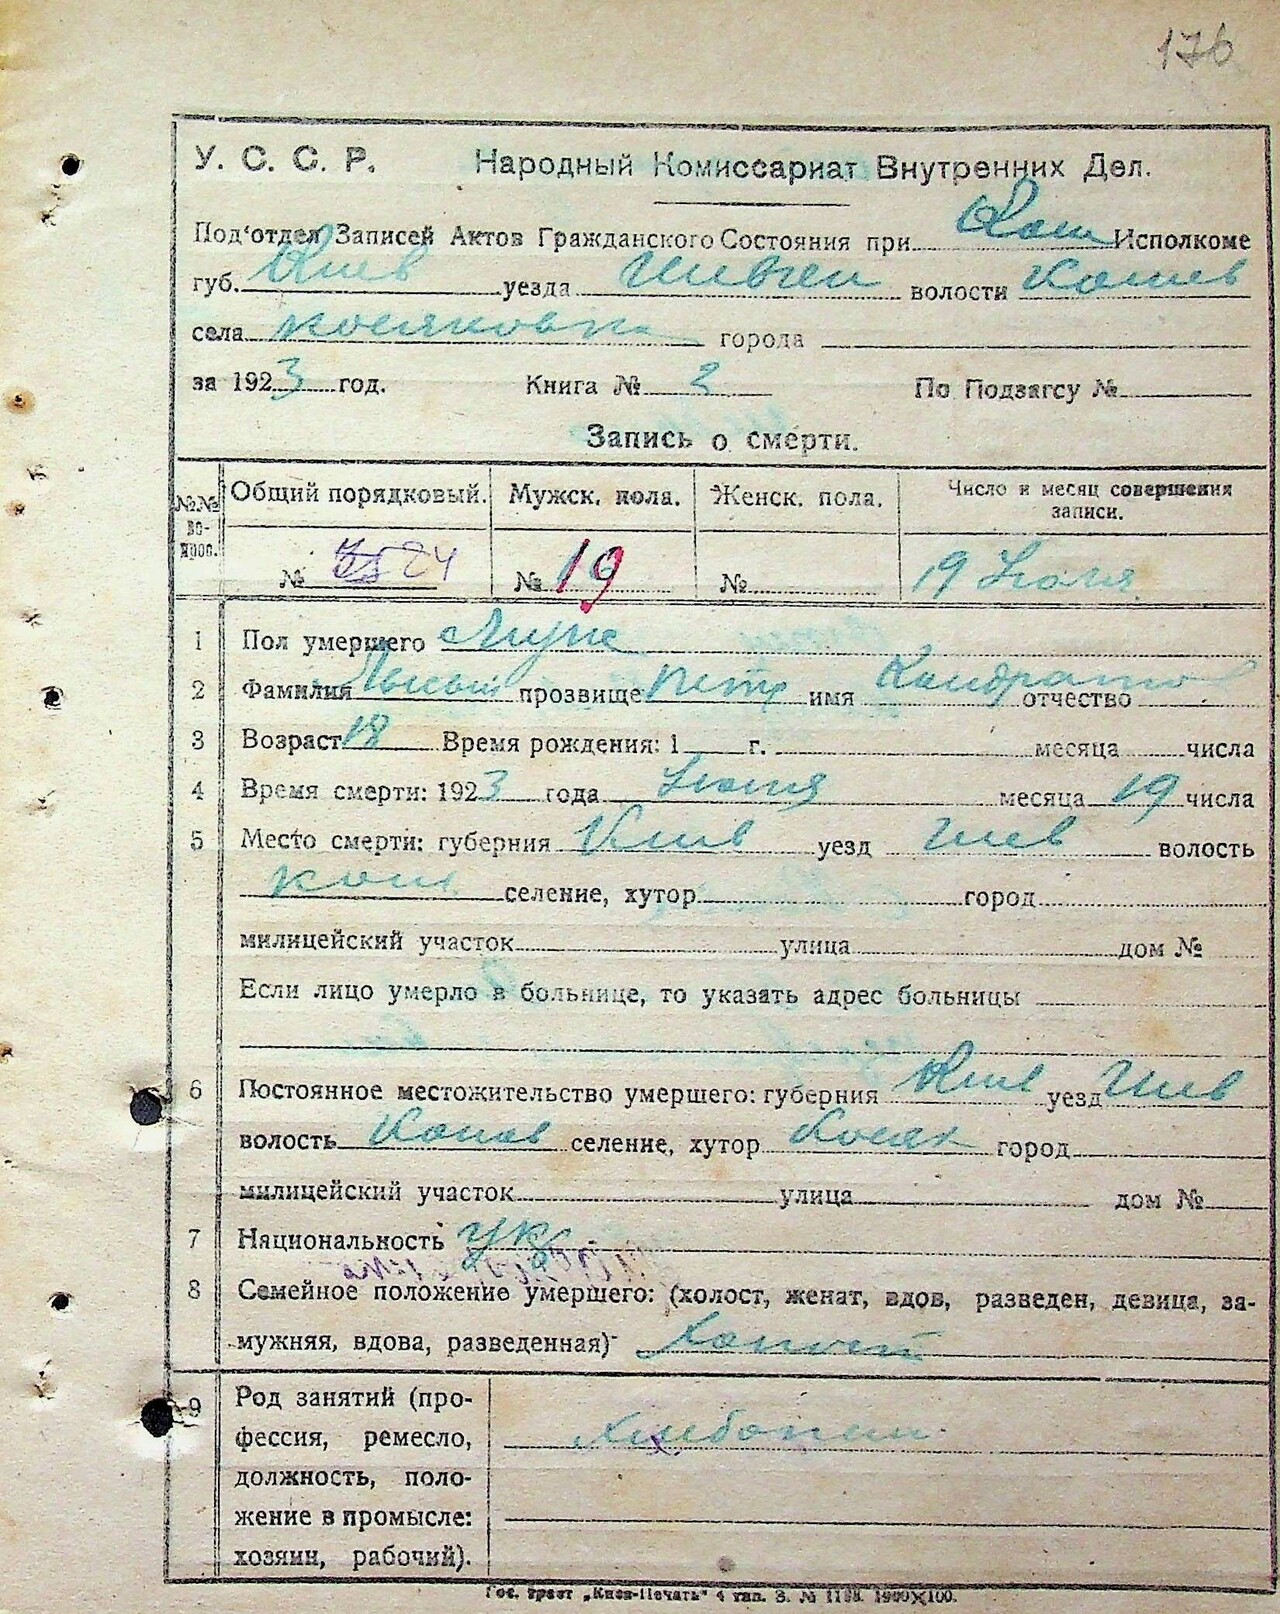 176
У. С. С. Р. Народный Комиссариат Внутренних Дел.
Под'отдел Записей Актов Гражданского Состояния при Исполкоме
губ. Киев уезда волости Кашев
села Косяковка города
за 1923 год. Книга № 2 По Подзагсу №
Запись о смерти.
№№ во-прос. Общий порядковый. Мужск. пола. Женск. пола. Число и месяц совершения записи.
№ 24 № 19 № 19 Июля
1 Пол умершего Муже
2 Фамилия Лысый прозвище Петр имя Кондратов отчество
3 Возраст 18 Время рождения: 1 г. месяца числа
4 Время смерти: 1923 года Июля месяца 19 числа
5 Место смерти: губерния Киев уезд волость
Кош селение, хутор город
милицейский участок улица дом №
Если лицо умерло в больнице, то указать адрес больницы
6 Постоянное местожительство умершего: губерния Киев уезд
волость селение, хутор Косяк город
милицейский участок улица дом №
7 Национальность укр
8 Семейное положение умершего: (холост, женат, вдов, разведен, девица, за-
мужняя, вдова, разведенная) Холост
9 Род занятий (про-
фессия, ремесло, Хлебопаш
должность, поло-
жение в промысле:
хозяин, рабочий).
Гос. трест „Киев-Печать" 4 тип. З. № 1100×100.